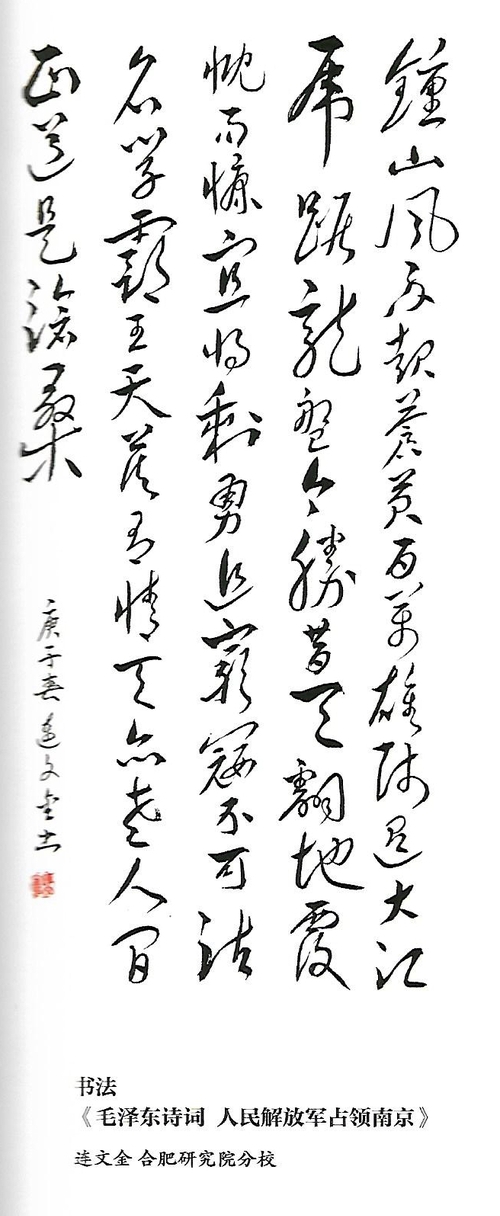 鍾山風雨起蒼黄百萬雄師過大江
虎踞龍盤今勝昔天翻地覆
慨而慷宜將剩勇追窮寇不可沽
名學霸王天若有情天亦老人間
正道是滄桑
庚子春連文金书
书法
《毛泽东诗词 人民解放军占领南京》
连文金 合肥研究院分校